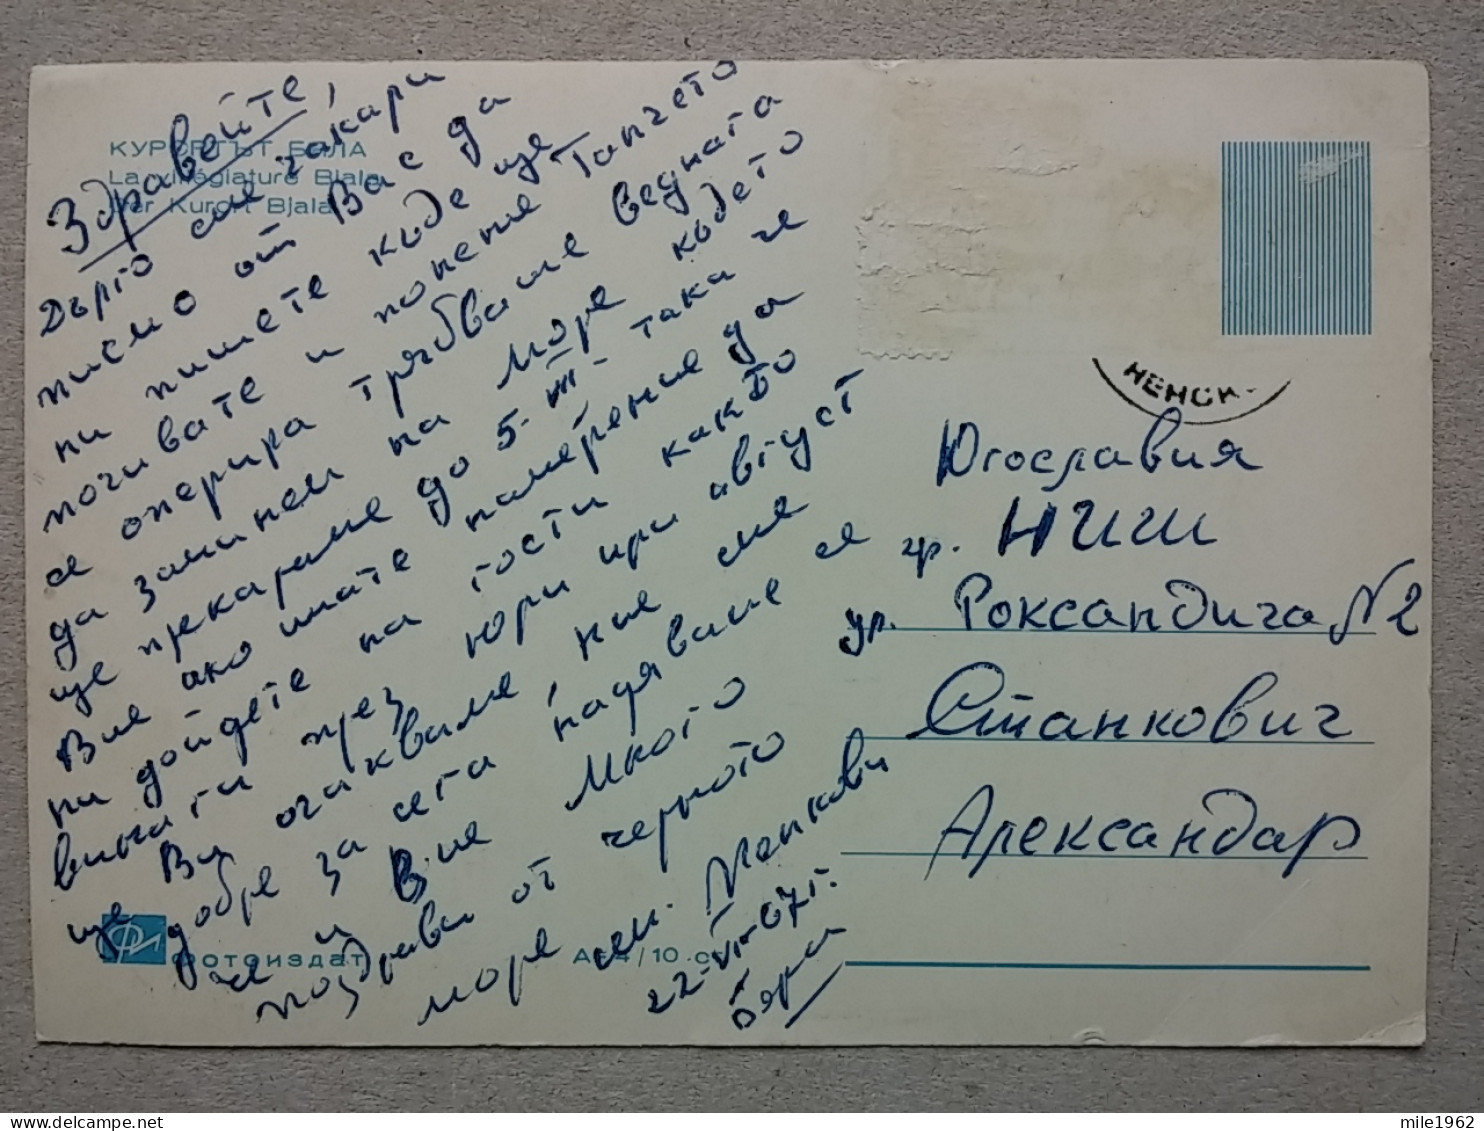 КУРОРТЪТ БЯЛА
La villégiature Bjala
Der Kurort Bjala
Здравейте,
Дълго ме закара
писмо от Вас да
ни пишете къде ще
почивате и понеже Танчето
се оперира трябваше веднага
да заминем на море където
ще прекараме до 5-III- така че
Вие ако имате намерение да
ни дойдете на гости както
винаги през юри при август
ще Ви очакваме, ние сме
добре за сега, надяваме се
че и Вие Много
поздрави от черното
море сем. Менкови
22-VI-67г.
Бяла
ФОТОИЗДАТ
/10 с
НЕНСИ
Югославия
гр. НИШ
ул. Роксандича N2
Станкович
Александар
mile1962